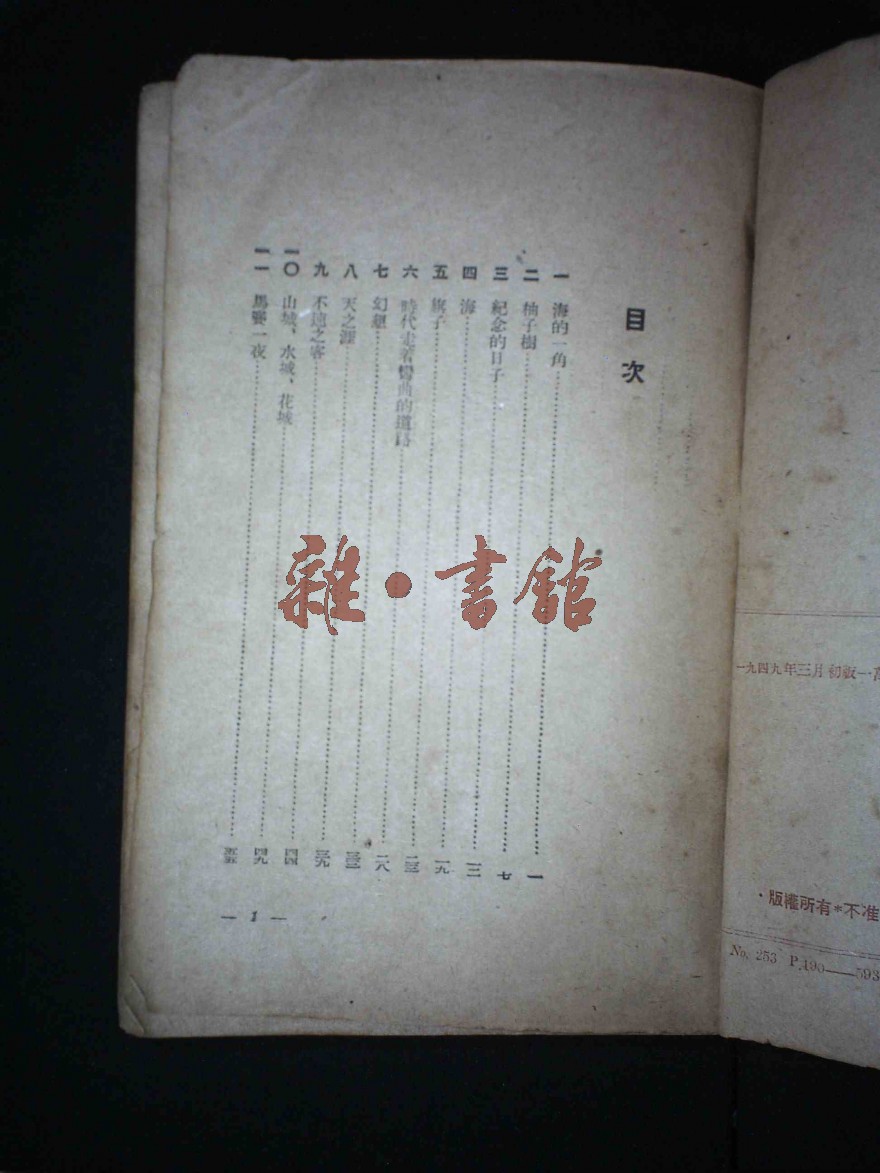 目次
一 海的一角 一
二 柚子樹 七
三 紀念的日子 一二
四 海 一九
五 旗子 二三
六 時代走着彎曲的道路 二八
七 幻想
八 天之涯 三九
九 不速之客 四四
一〇 山城、水城、花城 四九
一一 馬賽一夜 五五
— 1 —
雜·書館
一九四九年三月初版一
·版權所有*不准
No. 253 P.190——593